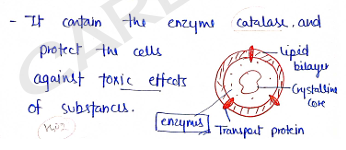 - It contain the enzyme catalase and
protect the cells
against toxic effects
of substances.
H2O2
enzymes
lipid
bilayer
Crystalline
core
Transport protein